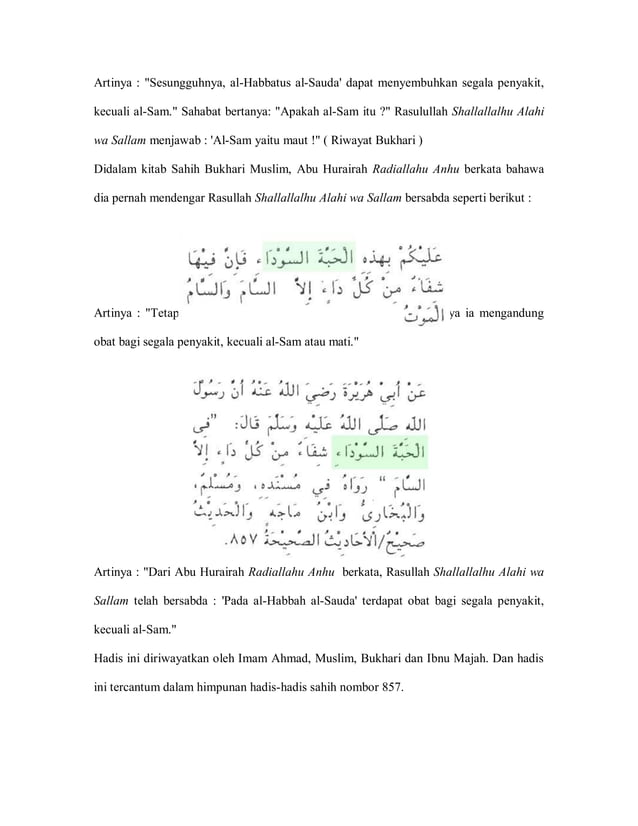 Artinya : "Sesungguhnya, al-Habbatus al-Sauda' dapat menyembuhkan segala penyakit,
kecuali al-Sam." Sahabat bertanya: "Apakah al-Sam itu ?" Rasulullah Shallallalhu Alahi
wa Sallam menjawab : 'Al-Sam yaitu maut !" ( Riwayat Bukhari )
Didalam kitab Sahih Bukhari Muslim, Abu Hurairah Radiallahu Anhu berkata bahawa
dia pernah mendengar Rasullah Shallallalhu Alahi wa Sallam bersabda seperti berikut :
عَلَيْكُمْ بِهذِهِ الْحَبَّةَ السَّوْدَاءِ فَإِنَّ فِيْهَا
شِفَاءً مِنْ كُلِّ دَاءٍ إِلاَّ السَّامَ وَالسَّامُ
الْمَوْتُ
Artinya : "Tetap ya ia mengandung
obat bagi segala penyakit, kecuali al-Sam atau mati."
عَنْ أَبِيْ هُرَيْرَةَ رَضِيَ اللهُ عَنْهُ أَنَّ رَسُوْلَ
اللهِ صَلَّى اللهُ عَلَيْهِ وَسَلَّمَ قَالَ: "فِي
الْحَبَّةَ السَّوْدَاءِ شِفَاءٌ مِنْ كُلِّ دَاءٍ إِلاَّ
السَّامَ " رَوَاهُ فِي مُسْنَدِهِ، وَمُسْلِمٌ،
وَالْبُخَارِىُّ وَابْنُ مَاجَه وَالْحَدِيْثُ
صَحِيْحٌ/الأَحَادِيْثُ الصَّحِيْحَةُ ٨٥٧.
Artinya : "Dari Abu Hurairah Radiallahu Anhu berkata, Rasullah Shallallalhu Alahi wa
Sallam telah bersabda : 'Pada al-Habbah al-Sauda' terdapat obat bagi segala penyakit,
kecuali al-Sam."
Hadis ini diriwayatkan oleh Imam Ahmad, Muslim, Bukhari dan Ibnu Majah. Dan hadis
ini tercantum dalam himpunan hadis-hadis sahih nombor 857.